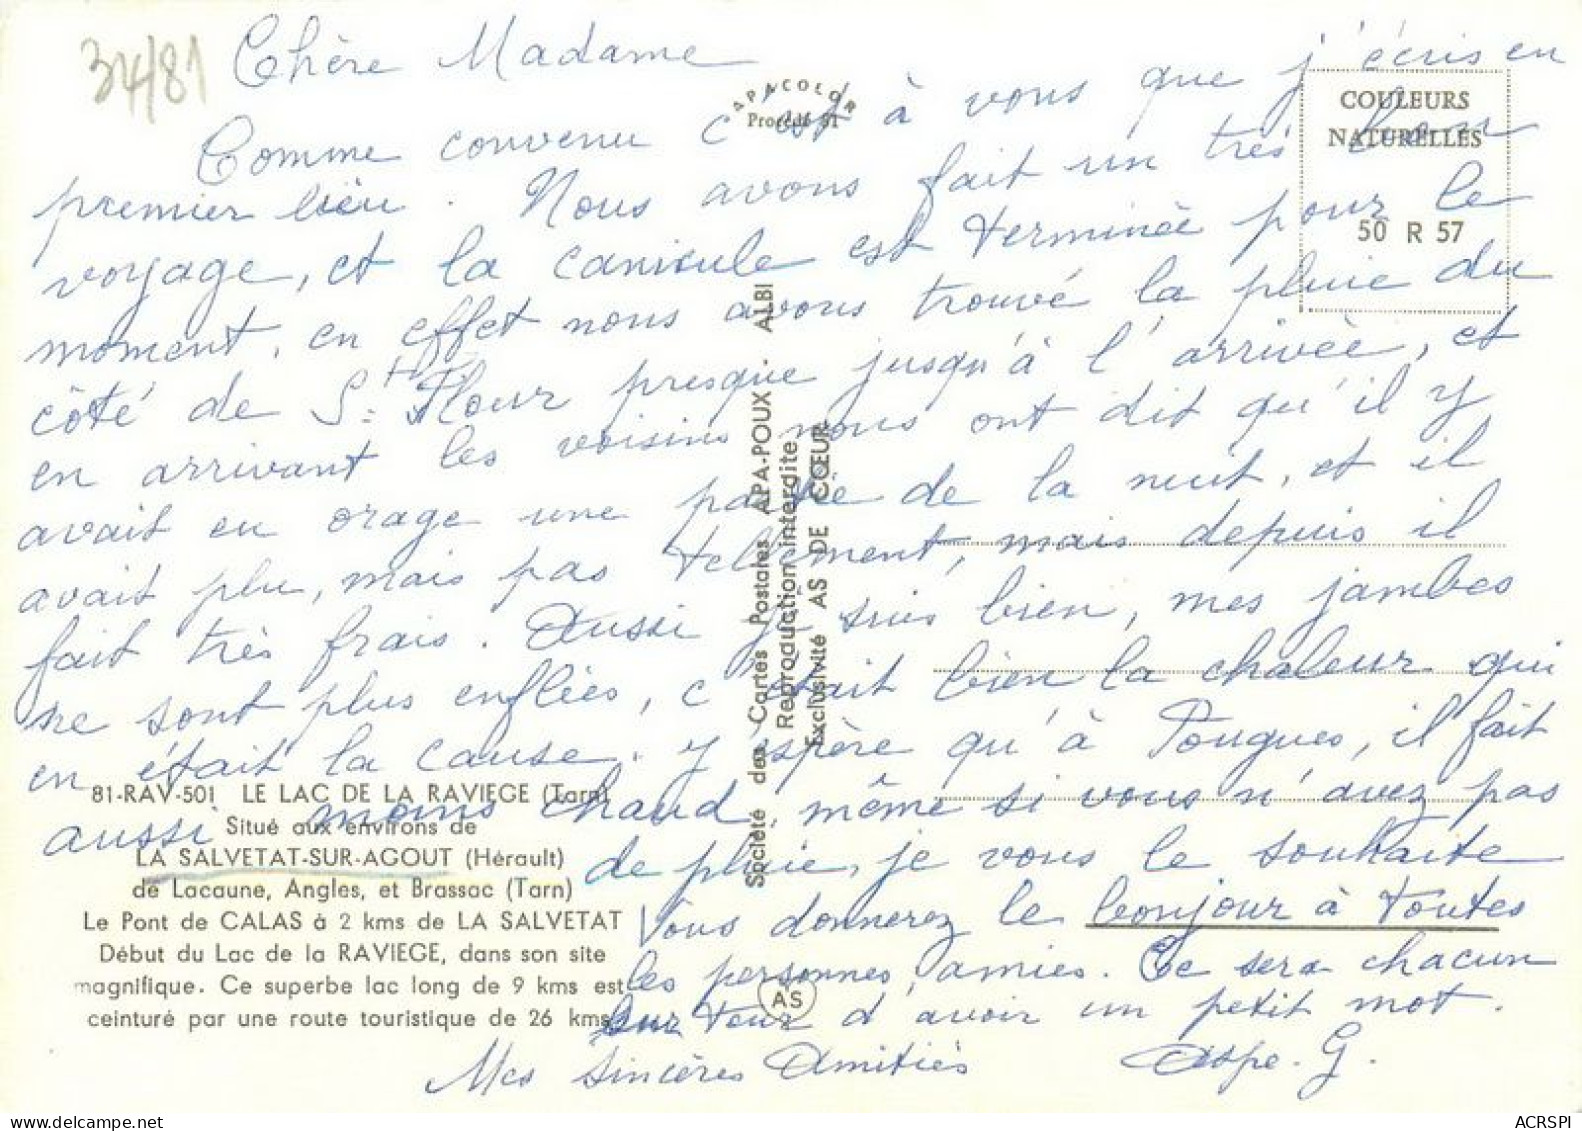 34/81
Chère Madame
Comme convenu c'est à vous que j'écris en
premier lieu. Nous avons fait un très bon
voyage, et la canicule est terminée pour le
moment, en effet nous avons trouvé la pluie du
côté de St Flour presque jusqu'à l'arrivée, et
en arrivant les voisins nous ont dit qu'il y
avait eu orage une partie de la nuit, et il
avait plu, mais pas tellement, mais depuis il
fait très frais. Aussi je suis bien, mes jambes
ne sont plus enflées, c'était bien la chaleur qui
en était la cause. J'espère qu'à Pougues, il fait
aussi moins chaud, même si vous n'avez pas
de pluie, je vous le souhaite
Vous donnerez le bonjour à toutes
les personnes, amies. Ce sera chacun
leur tour d'avoir un petit mot.
Mes sincères Amitiés Aspe. G.
APACOLOR
Procédé 51
COULEURS
NATURELLES
50 R 57
Société des Cartes Postales APA-POUX. ALBI
Reproduction interdite
Exclusivité AS DE CŒUR
AS
81-RAV-501 LE LAC DE LA RAVIEGE (Tarn)
Situé aux environs de
LA SALVETAT-SUR-AGOUT (Hérault)
de Lacaune, Angles, et Brassac (Tarn)
Le Pont de CALAS à 2 kms de LA SALVETAT
Début du Lac de la RAVIEGE, dans son site
magnifique. Ce superbe lac long de 9 kms est
ceinturé par une route touristique de 26 kms
ACRSPI